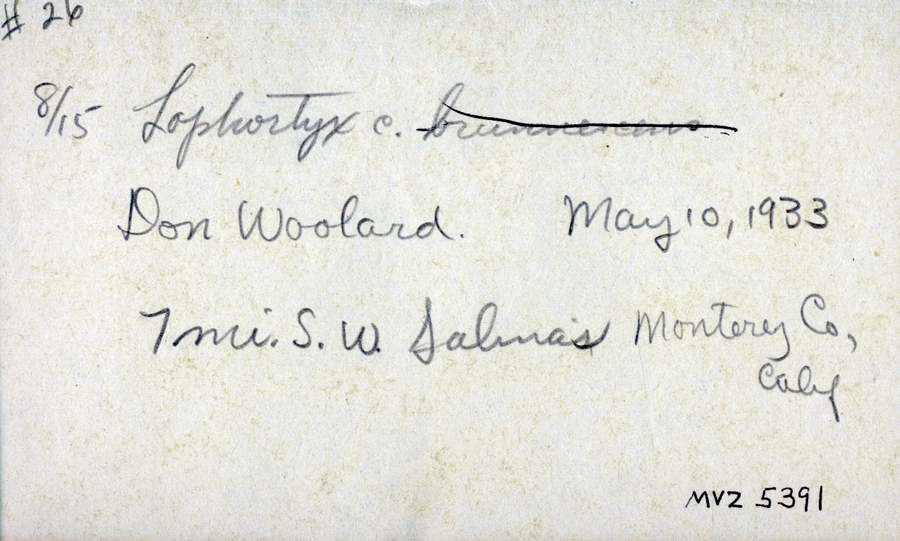 # 26
8/15 Lophortyx c. brunnescens
Don Woolard. May 10, 1933
7 mi. S. W. Salinas Monterey Co,
Calif
MVZ 5391